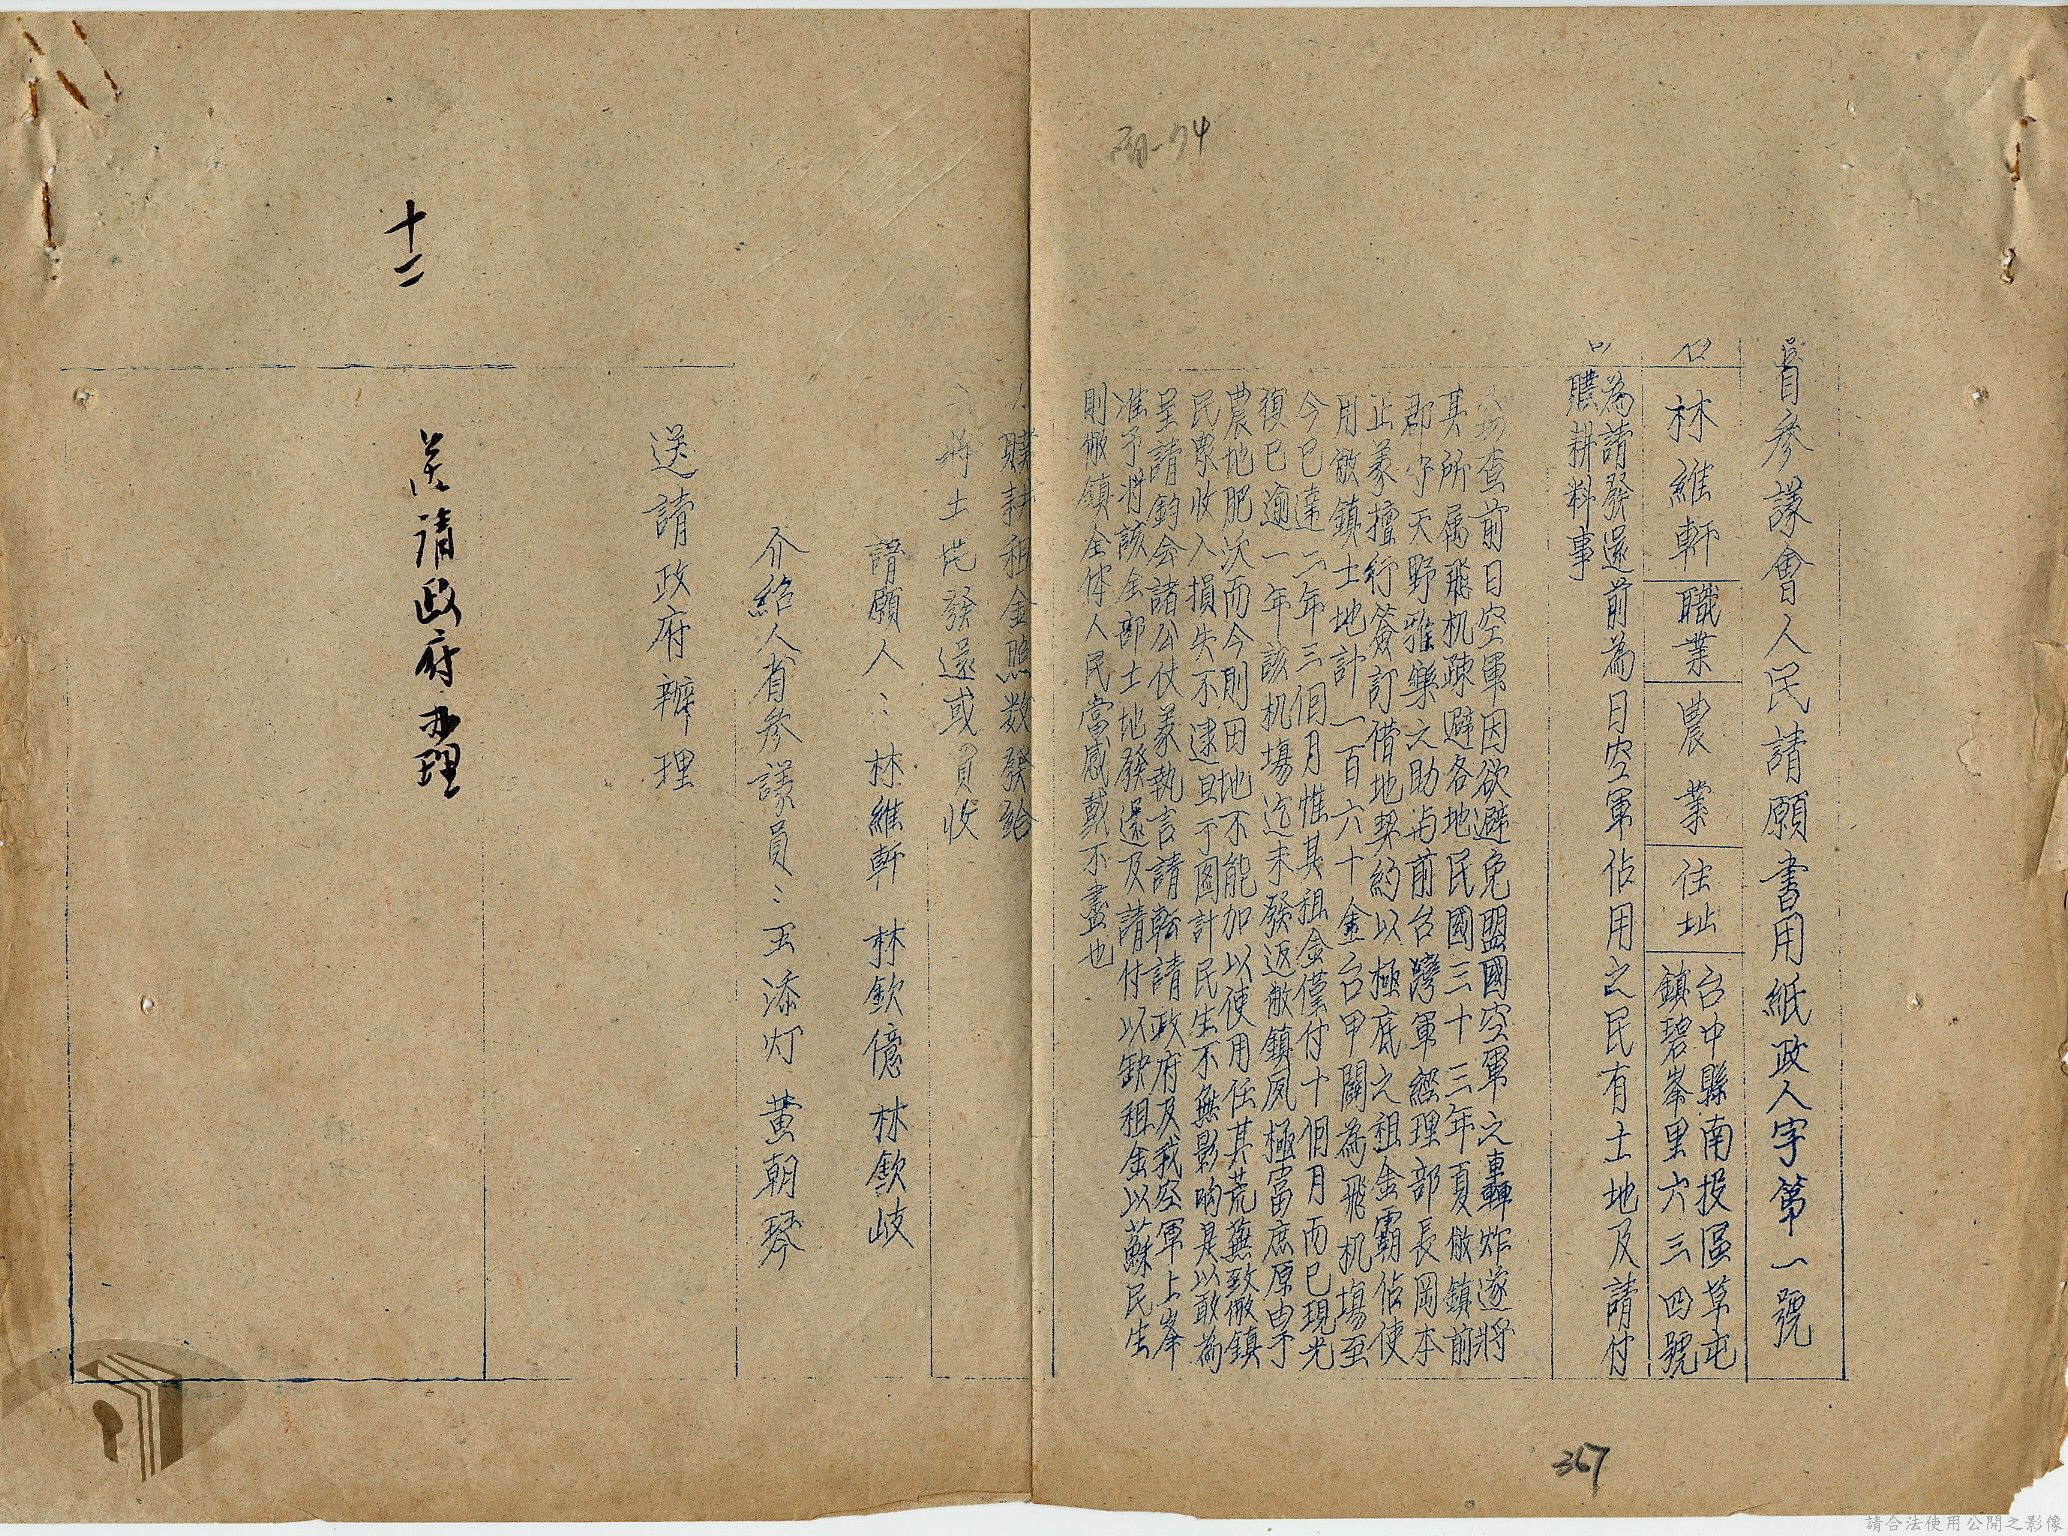 員參議會人民請願書用紙政人字第一號
林維軒
職業
農業
住址
台中縣南投區草屯
鎮碧峯里六三四號
為請發還前為日空軍佔用之民有土地及請付
購耕料事
查前日空軍因欲避免盟國空軍之轟炸遂將
其所属飛机疎避各地民國三十三年夏敝鎮前
郡守天野雅樂之助為前台灣軍經理部長岡本
止義擅行簽訂借地契約以極底之租金霸佔使
用敝鎮土地計一百六十金台甲闢為飛机場至
今已達二年三個月惟其租金僅付十個月而已現光
復已逾一年該机場迄未發返敝鎮夙極富庶原由予
農地肥沃而今則田地不能加以使用任其荒蕪致敝鎮
民眾收入損失不逮且于國計民生不無影响是以敢為
呈請鈞会諸公仗義執言請轉請政府及我空軍上峯
准予将該全部土地發還及請付以缺租金以蘇民生
則敝鎮全体人民當感戴不盡也
購耕租金照数發給
將土地發還或員收
請願人：林維軒 林欽億 林欽岐
介紹人省參議員：玉添灯 黃朝琴
送請政府辦理
送請政府办理
十二
367
請合法使用公開之影像